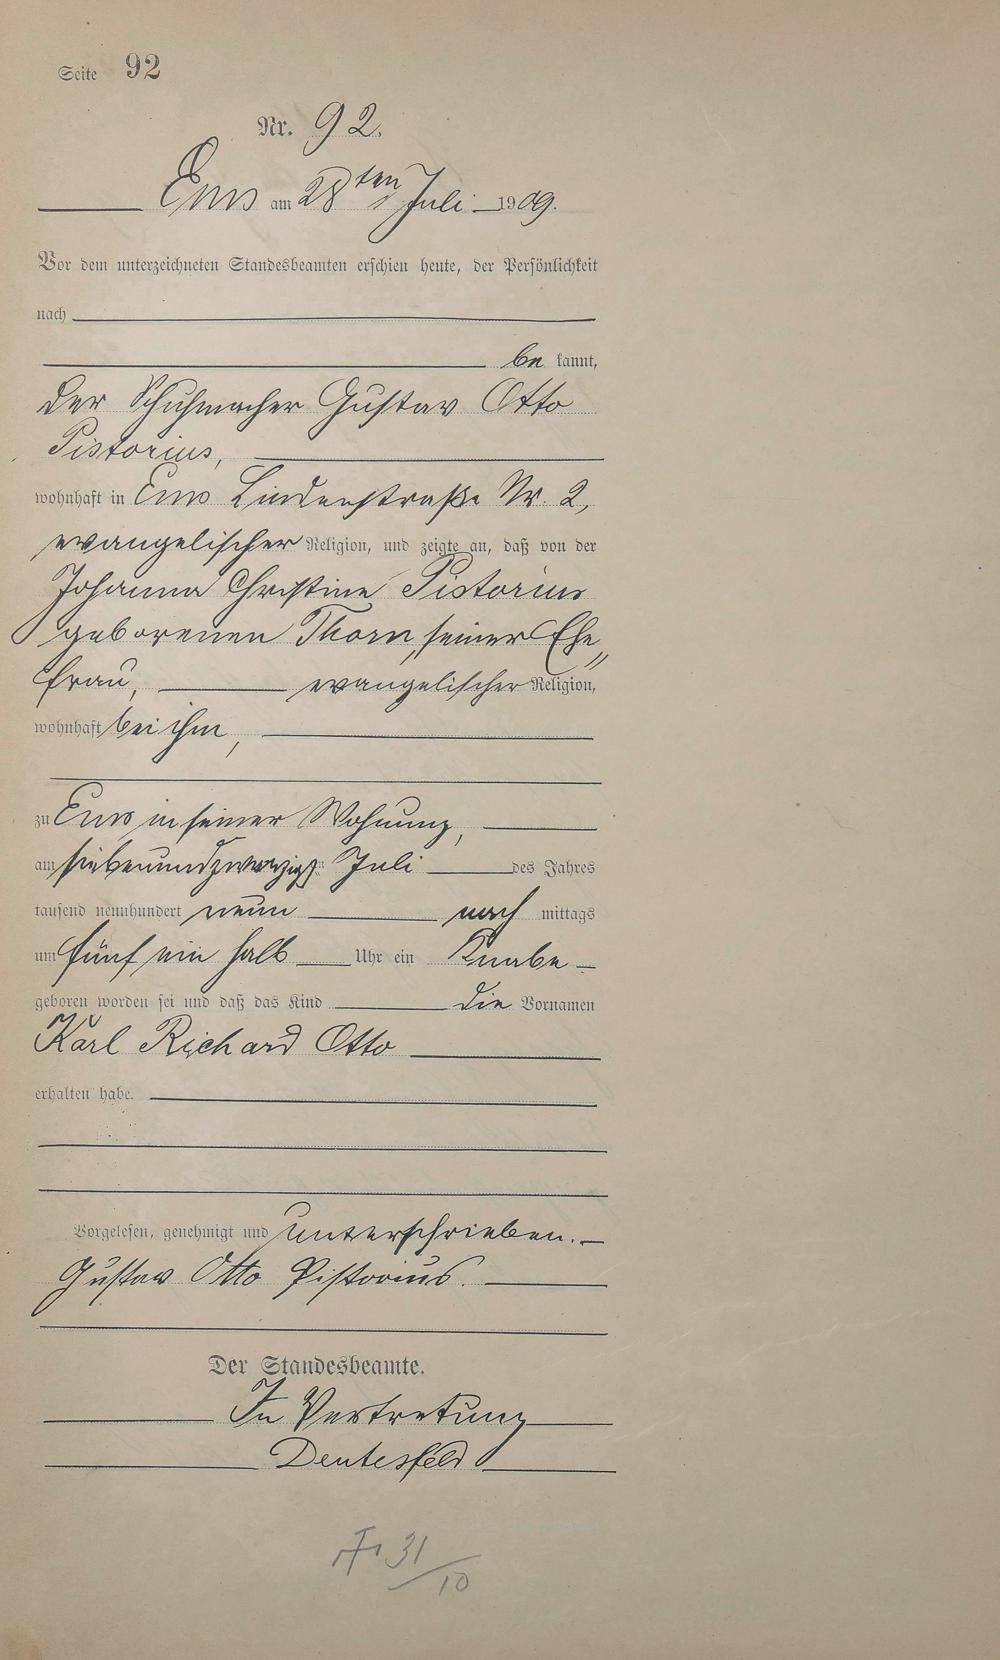 Seite 92
Nr. 92.
Ems am 28ten Juli 1909.
Vor dem unterzeichneten Standesbeamten erschien heute, der Persönlichkeit
nach
be kannt,
der Schuhmacher Gustav Otto
Pistorius,
wohnhaft in Ems Lindenstraße Nr. 2,
evangelischer Religion, und zeigte an, daß von der
Johanna Christine Pistorius
geborenen Thorn, seiner Ehe„
frau, evangelischer Religion,
wohnhaft bei ihm,
zu Ems in seiner Wohnung,
am siebenundzwanzigsten Juli des Jahres
tausend neunhundert neun nach mittags
um fünf ein halb Uhr ein Knabe
geboren worden sei und daß das Kind die Vornamen
Karl Richard Otto
erhalten habe.
Vorgelesen, genehmigt und unterschrieben.
Gustav Otto Pistorius.
Der Standesbeamte.
In Vertretung
Deutesfeld
31/10